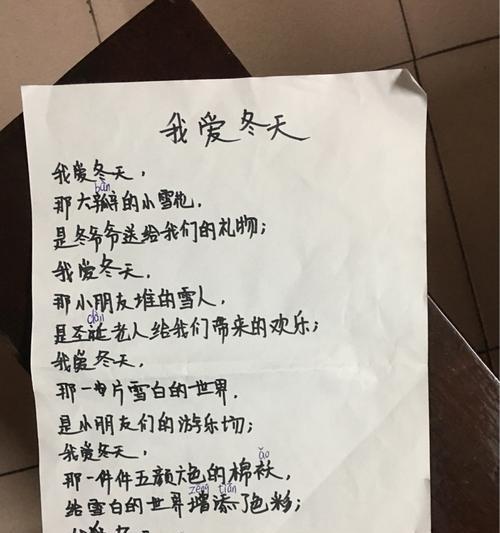 我爱冬天
我爱冬天，
bàn
那大瓣的小雪花，
是冬爷爷送给我们的礼物；
我爱冬天，
那小朋友堆的雪人，
dàn
是圣诞老人给我们带来的欢乐；
我爱冬天，
那一片雪白的世界，
是小朋友们的游乐场；
我爱冬天，
ǎo
那一件件五颜六色的棉袄，
zēng tiān
给雪白的世界增添了色彩；
我爱冬天